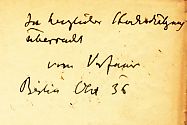 In herzlicher Hochschätzung
überreicht
vom Verfasser
Berlin Okt 36